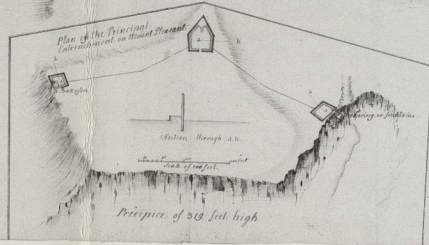 Plan of the Principal
Entrenchment on Mount Pleasant
a
b
b
b
Section through a.b.
Scale of 100 feet.
Precipice of 319 feet high